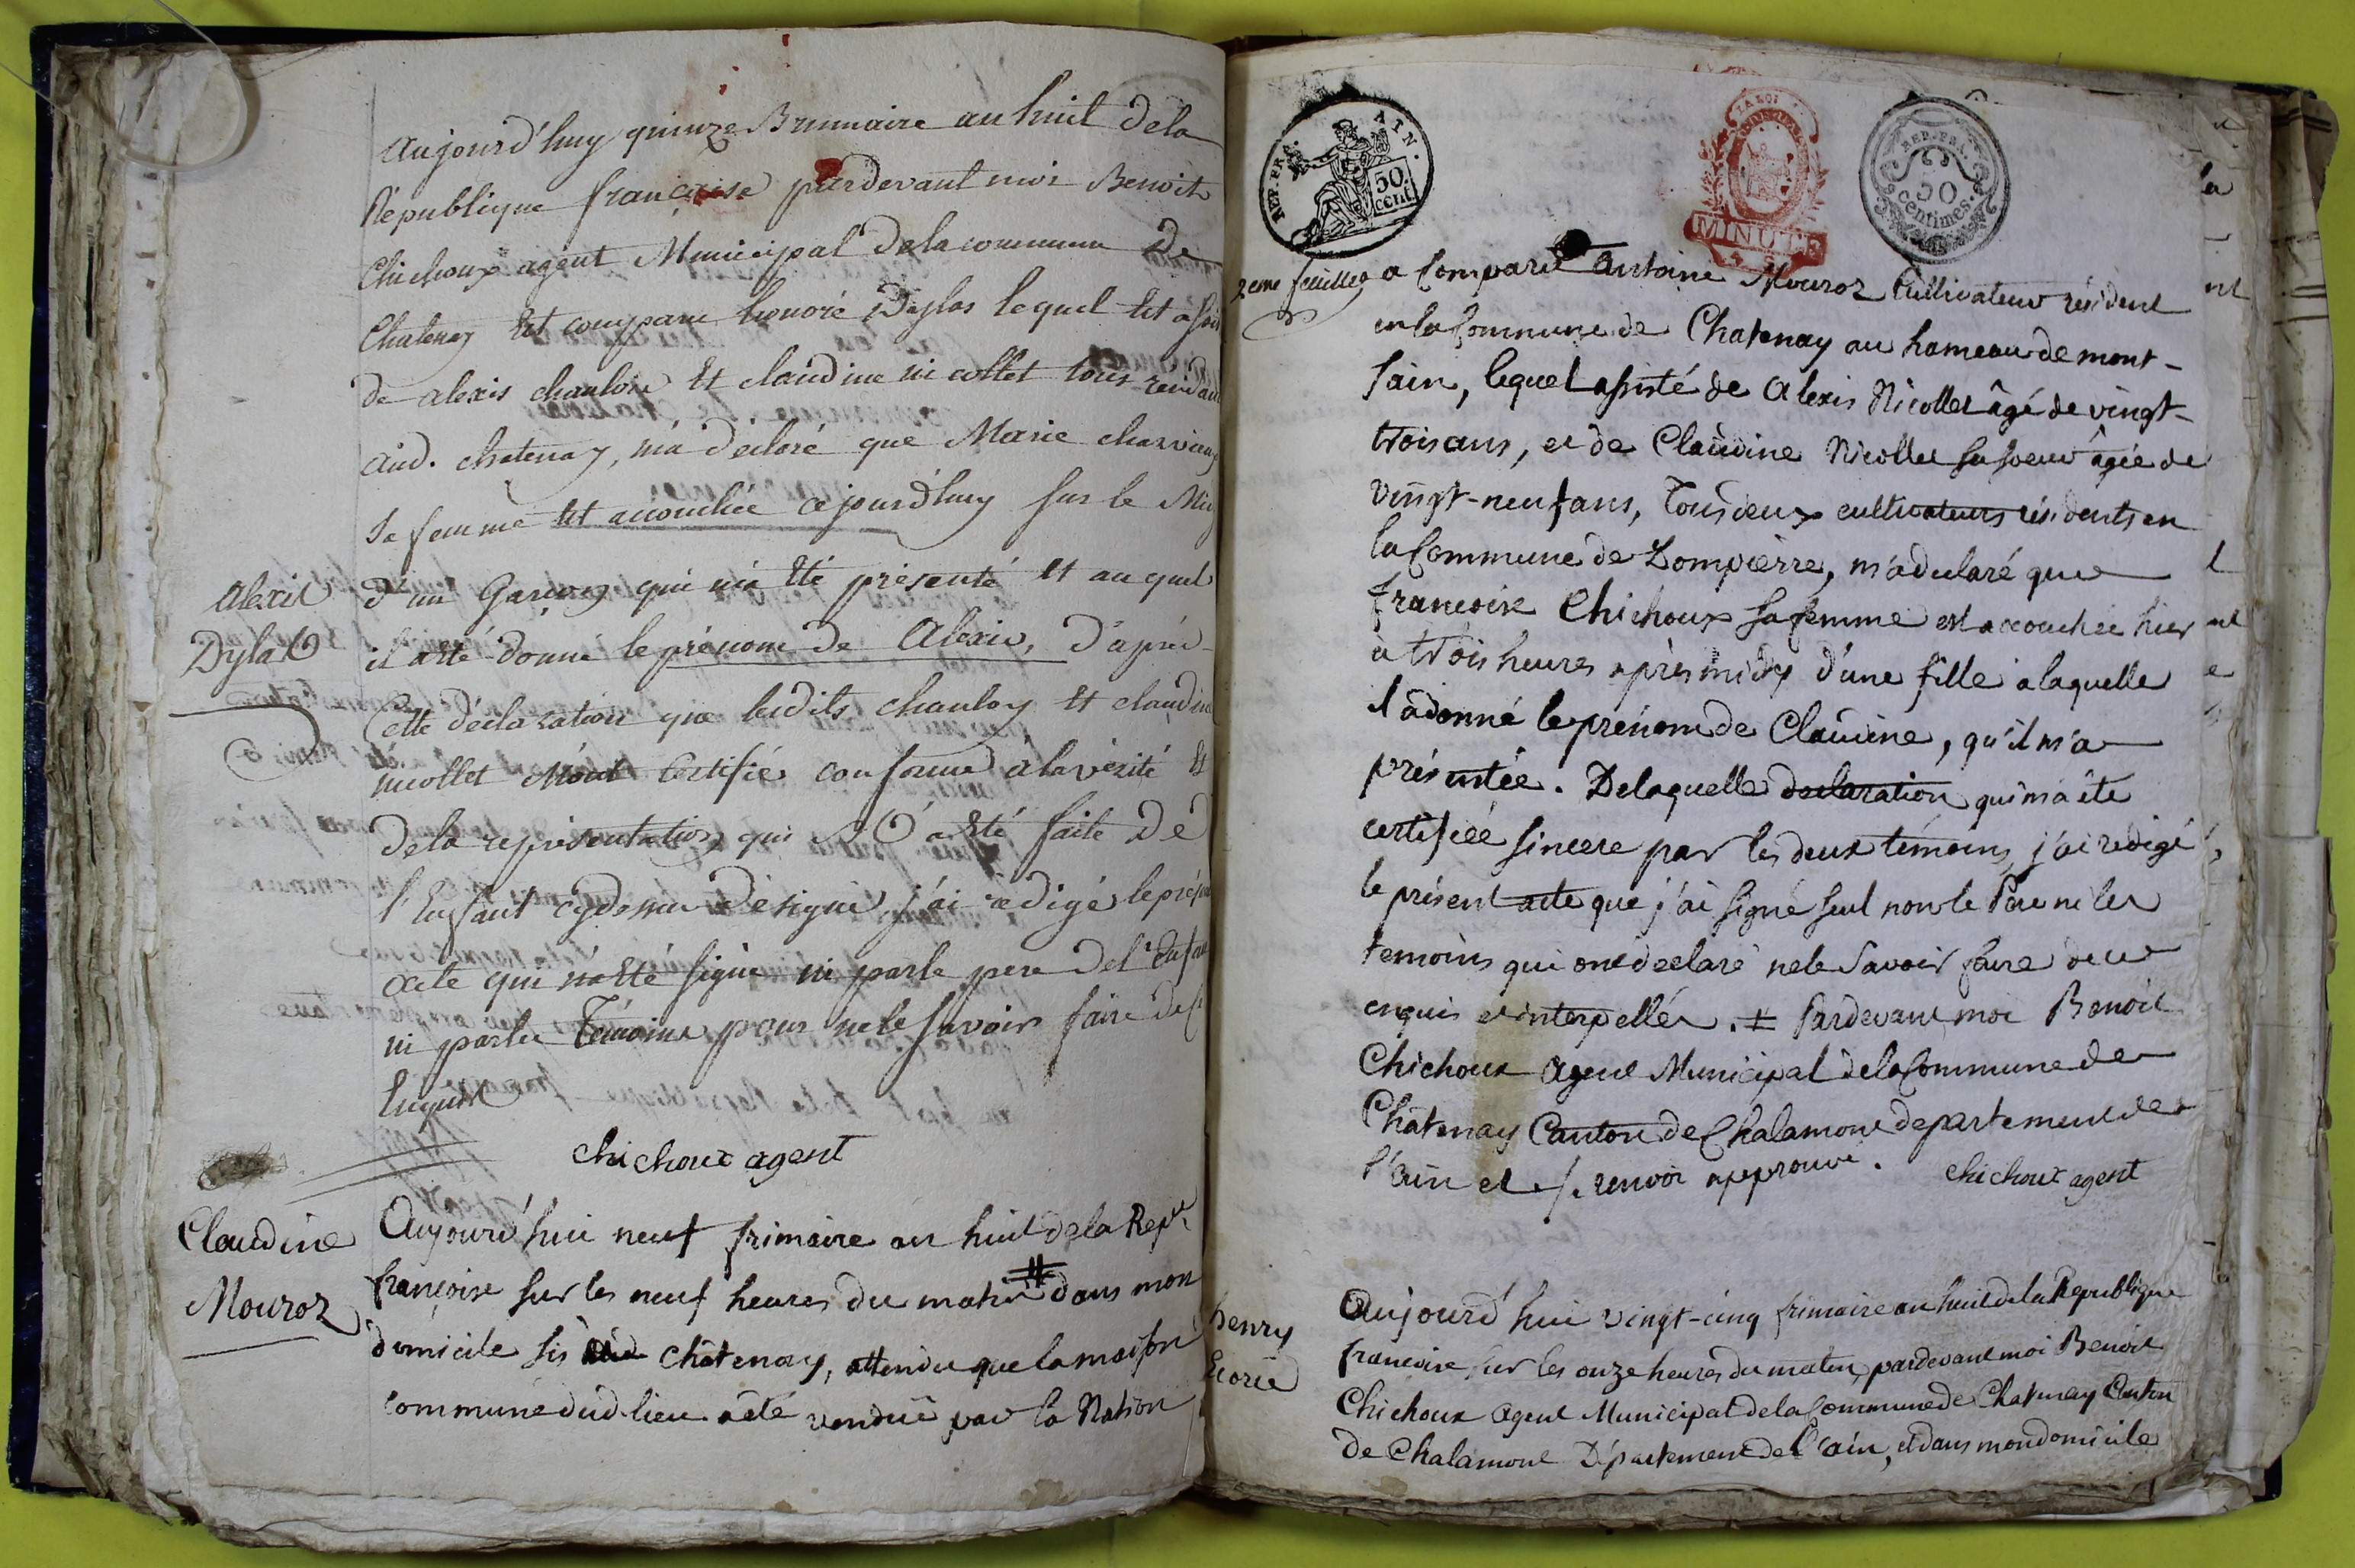 Aujourd'huy quinze Brumaire an huit dela
République française pardevant moi Benoit
Chichoux agent Municipal dela commune de
Chatenay Est comparu honoré Dylas lequel Est assisté
de alexis chanloy Et claudine nicollet tous resident
aud. chatenay, m'a déclaré que Marie charvieux
sa femme Est accouchée cejourd'huy sur le Midy
d'un Garçon qui m'a Eté présenté Et au quel
Alexis
Dylas
il a eté donné le prénom de Alexis, d'après
Cette déclaration que lesdits chanloy Et claudine
nicollet M'ont Certifié conforme à la vérité Et
Dela représentation qui a Eté faite de
l'Enfant cydessus désigné j'ai rédigé le présent
acte qui n'a Eté signé ni par le pere del'Enfant
ni par les Témoins pour ne le savoir faire de ce
Enquis
chichoux agent
Claudine
Mouroz
Aujourd'hui neuf frimaire an huit dela Repue
françoise sur les neuf heures du matin # dans mon
domicile sis chatenay, attendu que la maison
commune dud. lieu a été vendue par la Nation
REP. FRA. AIN.
50.
cent.
LA LOI
MINUTE
REP. FRA.
50
centimes.
2eme feuillet
a Comparu Antoine Mouroz Cultivateur résident
en la Commune de Chatenay au hameau de mont-
sain, lequel assisté de Alexis Nicollet âgé de vingt-
trois ans, et de Claudine Nicollet sa soeur âgée de
vingt-neuf ans, Tous deux cultivateurs résidents en
la Commune de Dompierre, m'a déclaré que
françoise Chichoux sa femme est accouchée hier
à trois heures après midy d'une fille à laquelle
il a donné le prénom de Claudine, qu'il m'a
présentée. De laquelle declaration qui m'a été
certifiée sincere par les deux témoins j'ai rédigé
le présent acte que j'ai signé seul non le Pere ni les
temoins qui ont declaré ne le savoir faire de ce
enquis et interpellés. # Pardevant moi Benoit
Chichoux Agent Municipal dela Commune de
Chatenay Canton de Chalamont departement de
l'ain et renvoi approuvé. chichoux agent
henry
Ecorie
Aujourd'hui vingt-cinq frimaire an huit dela République
françoise sur les onze heures du matin, pardevant moi Benoit
Chichoux Agent Municipal dela Commune de Chatenay Canton
de Chalamont Département del'ain, et dans mon domicile